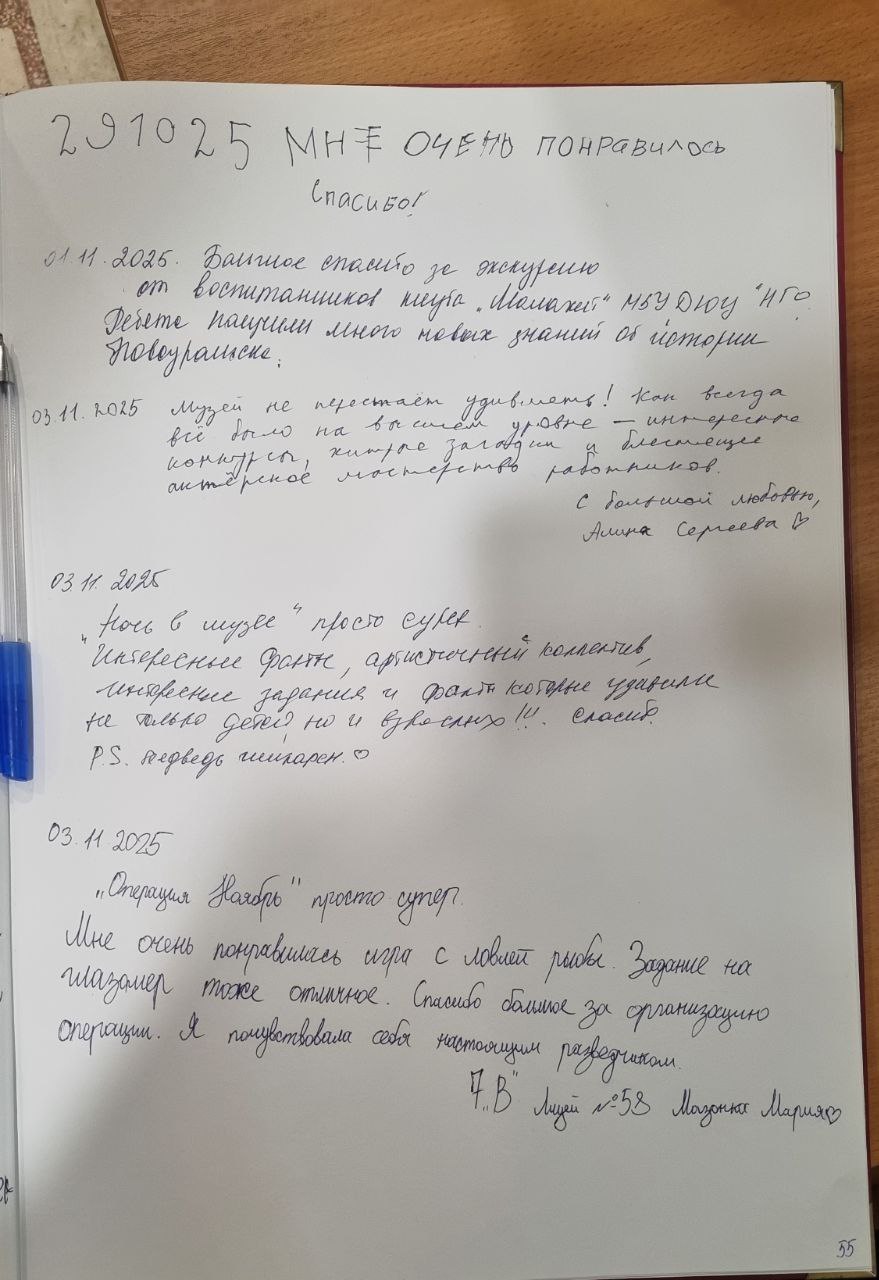 291025 МНЕ ОЧЕНЬ ПОНРАВИЛОСЬ
Спасибо!
01.11.2025. Большое спасибо за экскурсию
от воспитанников клуба „Малахит" МБУ ДЮЦ "НГО
Ребята получили много новых знаний об истории
Новоуральска.
03.11.2025 Музей не перестаёт удивлять! Как всегда
всё было на высшем уровне – интересные
конкурсы, хитрые загадки и блестящее
актёрское мастерство работников.
С большой любовью,
Алина Сергеева ♡
03.11.2025
„Ночь в музее" просто супер.
Интересные факты, артистичный коллектив,
интересные задания и факты которые удивили
не только детей, но и взрослых!!!. Спасибо.
P.S. Медведь шикарен. ♡
03.11.2025
„Операция Ноябрь" просто супер.
Мне очень понравилась игра с ловлей рыбы. Задание на
глазомер тоже отличное. Спасибо большое за организацию
операции. Я почувствовала себя настоящим разведчиком.
7„В" Лицей №58 Мазонка Мария♡
55